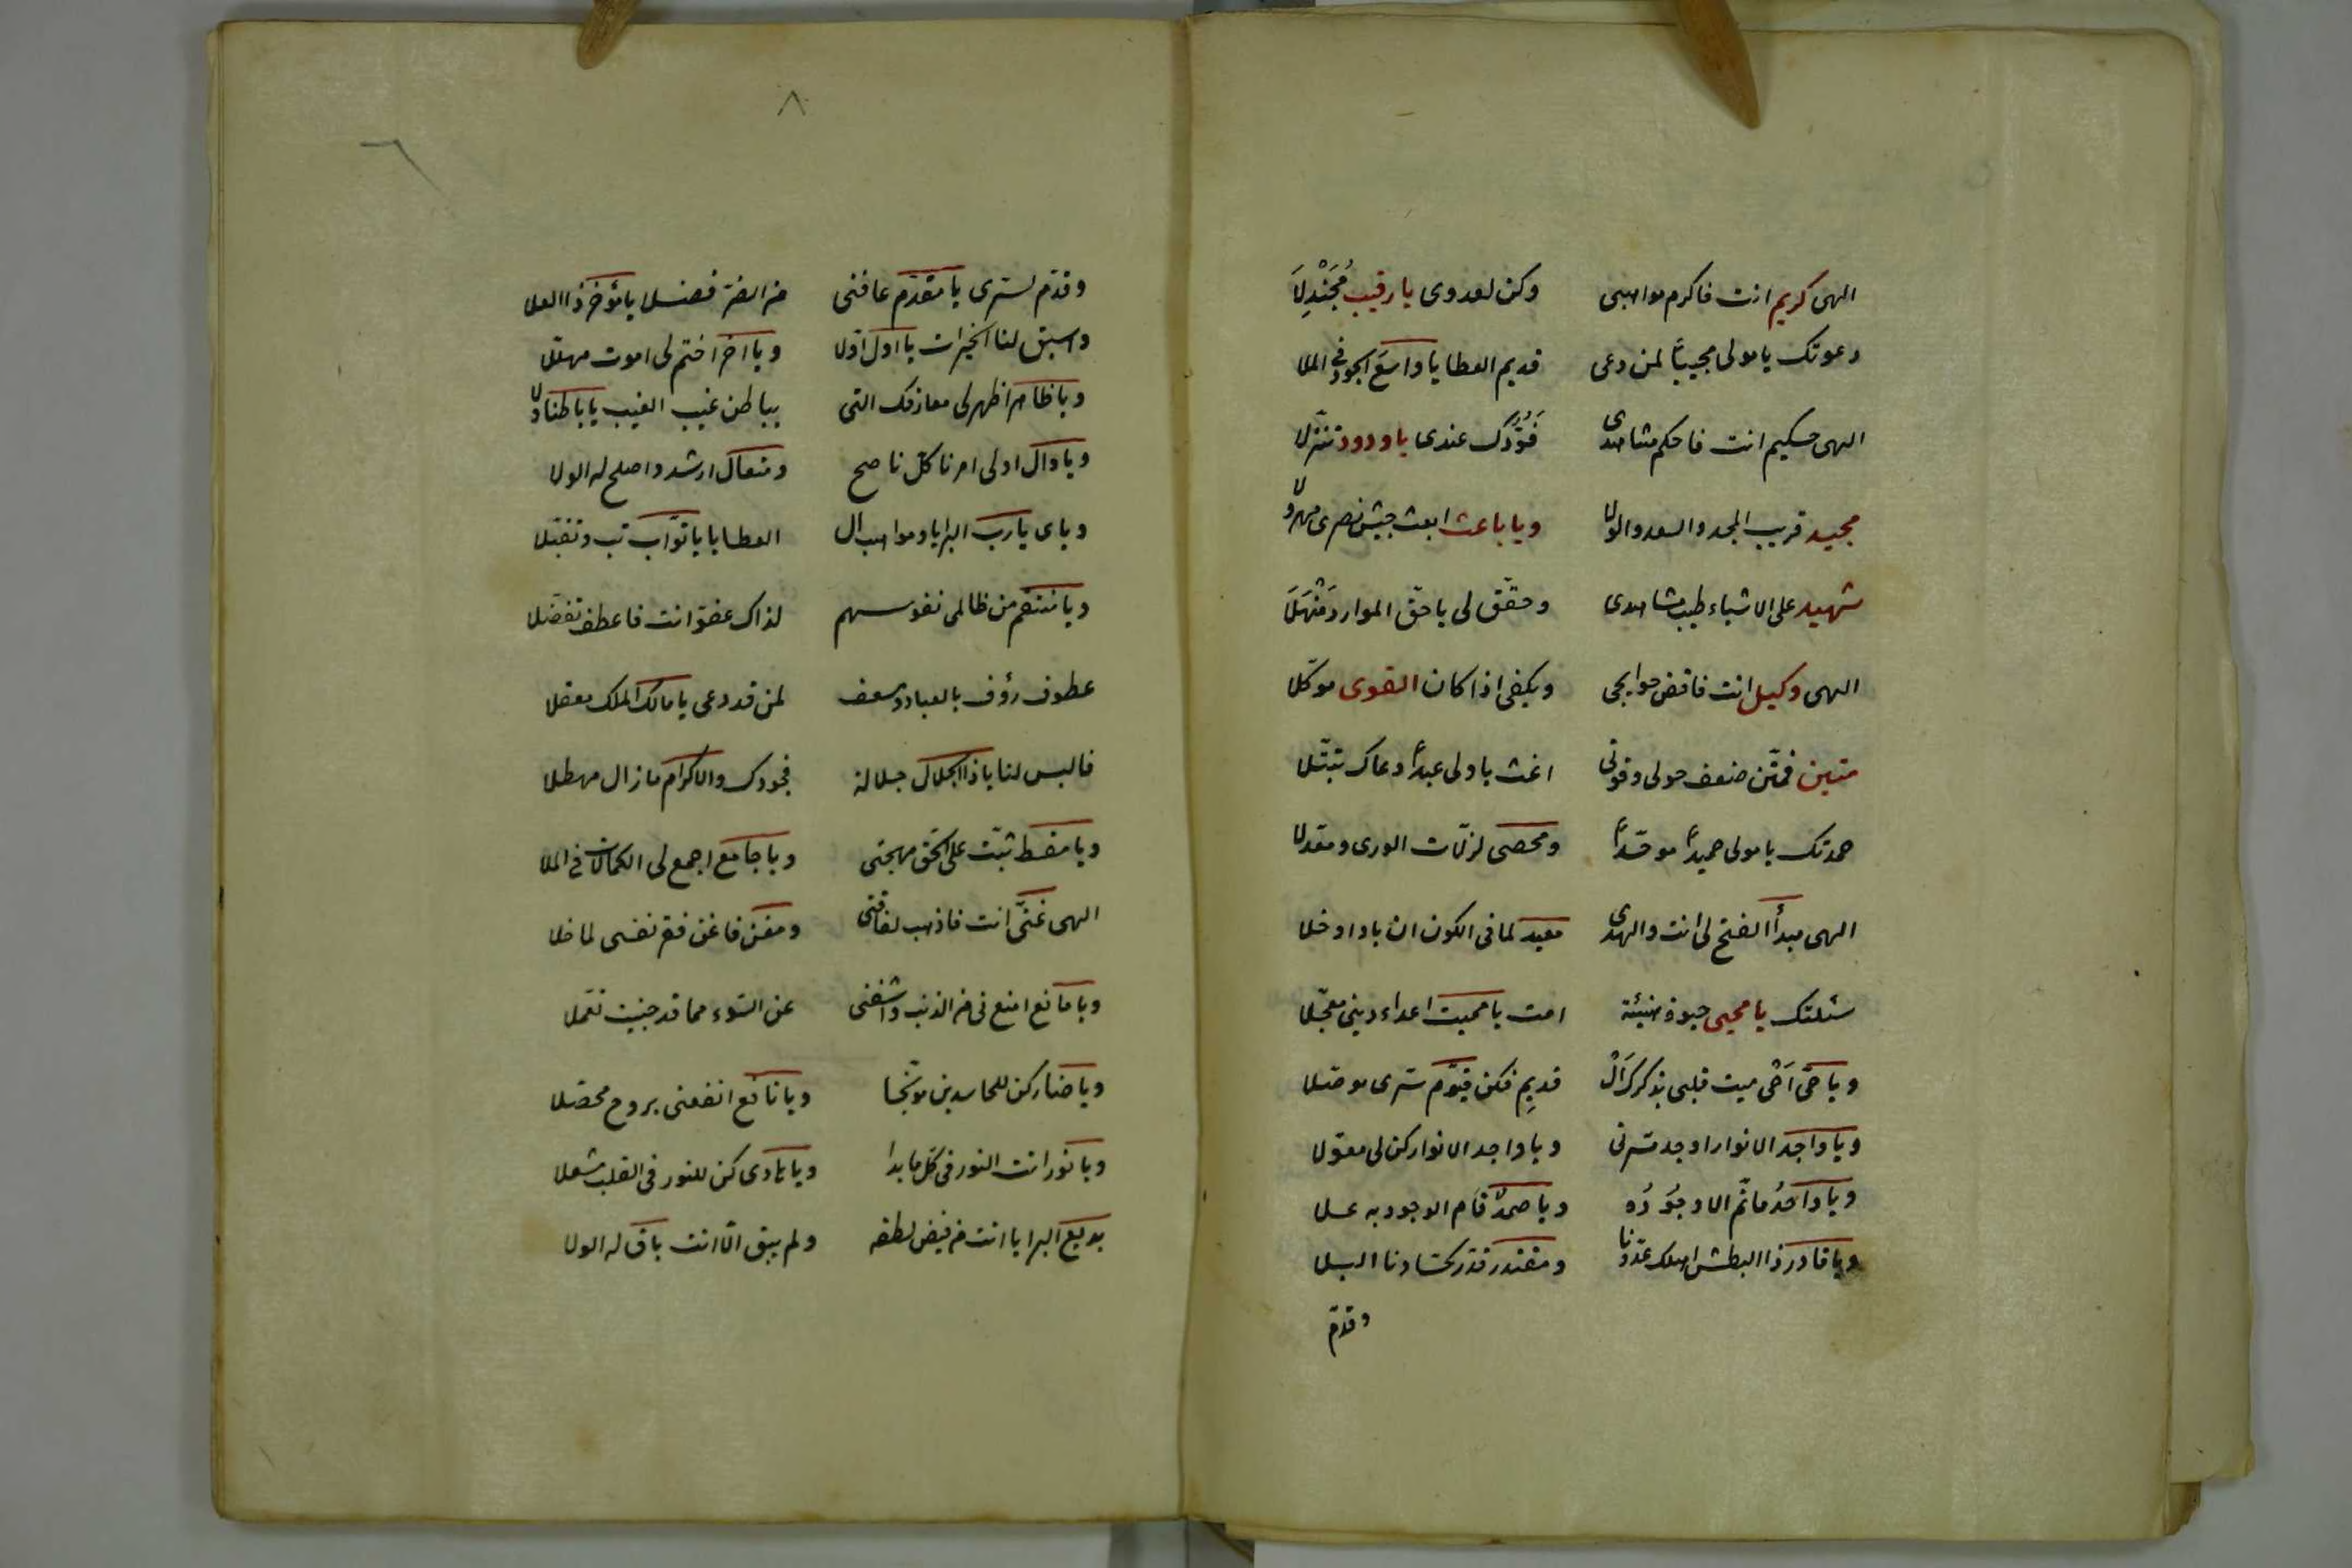 الهى كريم انت فاكرم مواهبى وكن لعدوى يا رقيب مُجَنْدِلَا
دعوتك يا مولى مجيبًا لمن دعى قديم العطا يا واسع الجود فى الملا
الهى حكيم انت فاحكم مشاهدى فَوُدُّكَ عندى يا ودود تنزّلا
مجيد قريب المجد والسعد والولا ويا باعث ابعث جيش نصرى مهرولا
شهيد على الاشياء طيب مشاهدى وحقّق لى يا حقّ الموارد مَنْهَلَا
الهى وكيل انت فاقض حوايجى ويكفى اذا كان القوى موكّلا
متين فمتّن ضعف حولى وقوتى اغث يا ولى عبداً دعاك تبتّلا
حمدتك يا مولى حميداً موحّداً ومحصى لزلّات الورى ومعدلا
الهى مبدأ الفتح لى انت والهدى معيد لما فى الكون ان باد او خلا
سئلتك يا محيى حيوة هنيئة امت يا مميت اعداء دينى معجّلا
ويا حىّ اَحْى ميت قلبى بذكرك اَلْ قديمِ فكن قيّوم سرى موصّلا
ويا واجد الانوار اوجد مسرتى ويا واجد الانوار كن لى معوّلا
ويا واحدُ ماثَمّ الا وجُوْدُه ويا صمدٌ قام الوجود به علا
ويا قادر ذا البطش اهلك عدّونا ومقتدر قدّر لحسّادنا البلا
وقدّم
٨
وقدّم لسرى يا مقدّم عافنى من الضرّ فضلا يا مؤخر ذا العلا
واسبق لنا الخيرات يا اول اوّلا ويا اخر اختم لى اموت مهلّلا
ويا ظاهر اظهر لى معارفك التى بباطن غيب الغيب يا باطنا ولا
ويا وال اولى امرنا كلّ ناصح ومتعال ارشد واصلح له الولا
ويا رب البرايا ومواهب ال العطايا يا توّاب تب وتقبّلا
ويا منتقم من ظالمى نفوسهم لذاك عفو انت فاعطف تفضّلا
عطوف رؤف بالعباد ومسعف لمن قد دعى يا مالك الملك معقلا
فالبس لنا يا ذا الجلال جلالة فجودك والاكرام ما زال مهطلا
ويا مقسط ثبّت على الحق مهجتى ويا جامع اجمع لى الكمالات فى الملا
الهى غنىّ انت فاذهب لفاقتى ومغن فاغن فقر نفسى لما خلا
ويا مانع امنعنى من الذنب واشفنى عن السّوء مما قد جنيت تعمّلا
ويا ضار كن للحاسدين موبّخا ويا نافع انفعنى بروح محصّلا
ويا نور انت النور فى كلّ ما بدا ويا هادى كن للنور فى القلب مشعلا
بديع البرايا انت من فيض لطفه ولم يبق الّا انت باق له الولا